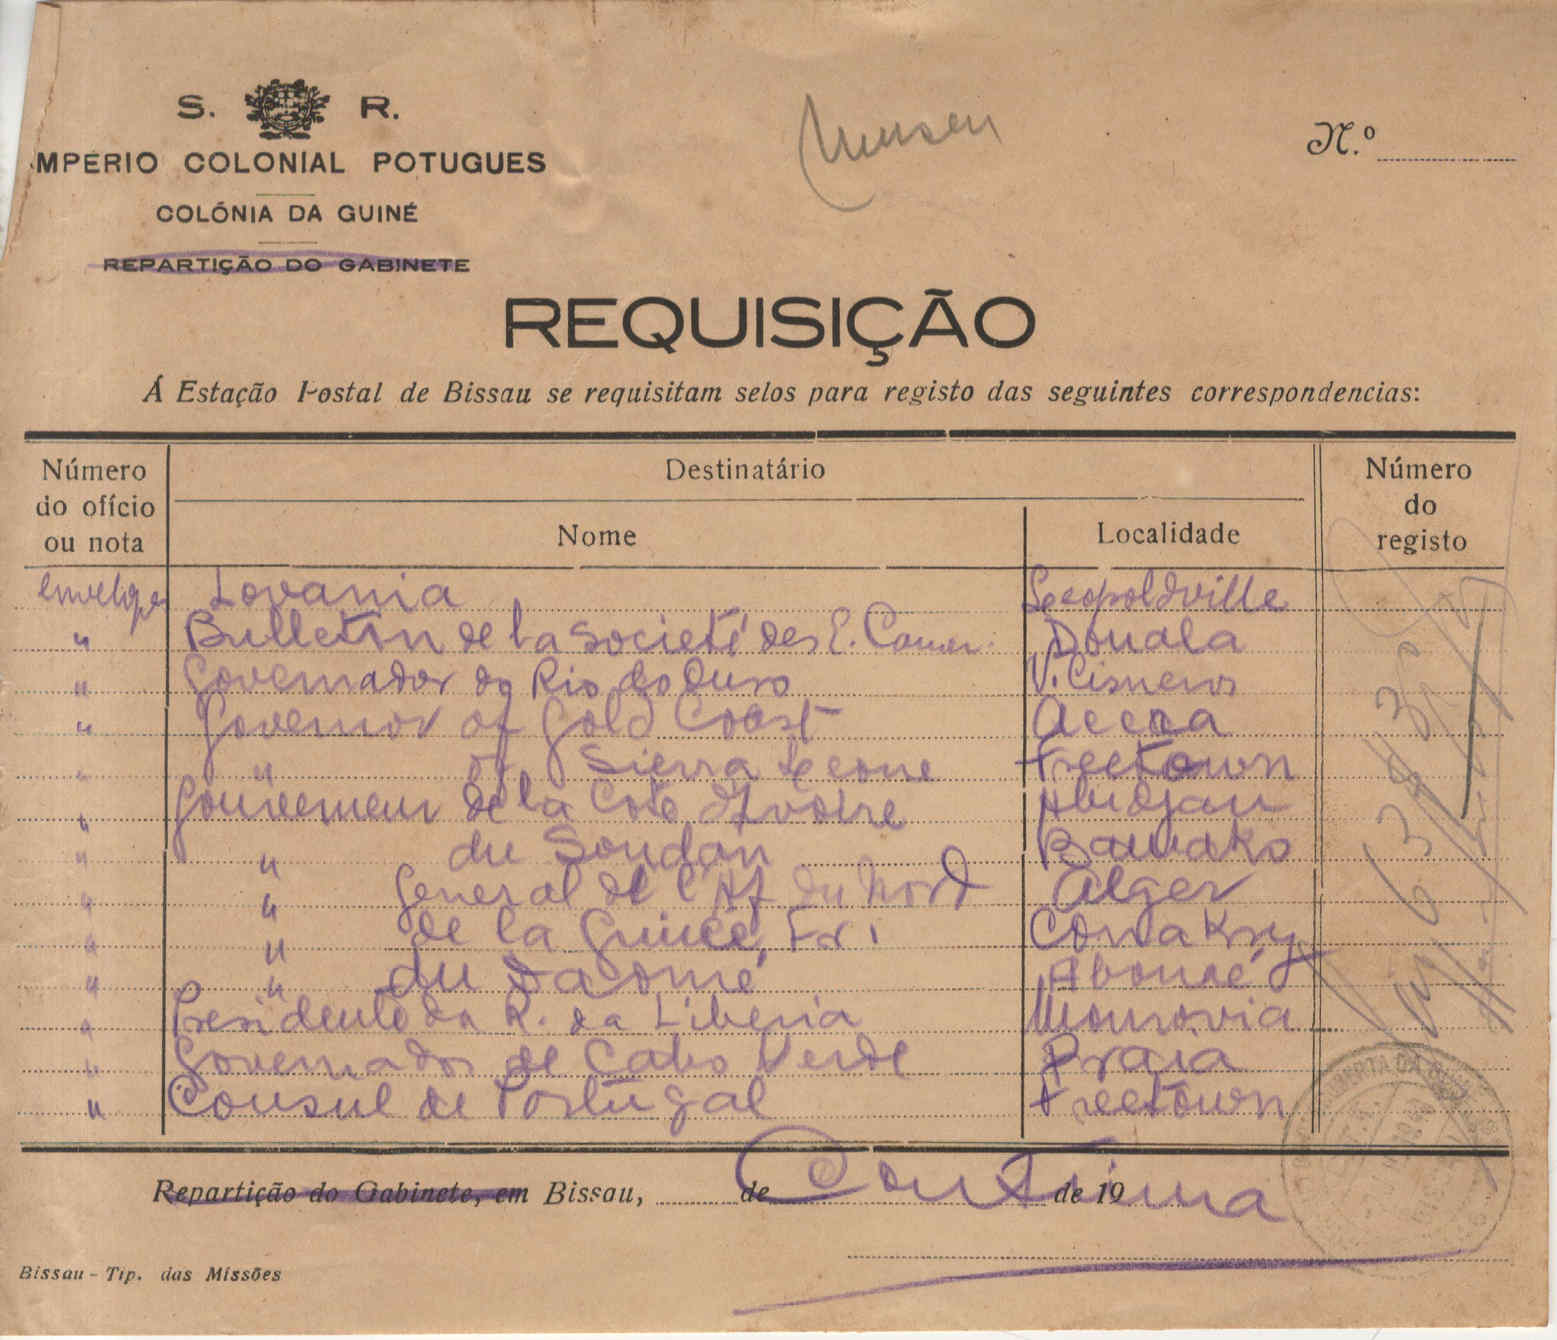 S. R.
MPÉRIO COLONIAL POTUGUES
COLÓNIA DA GUINÉ
REPARTIÇÃO DO GABINETE
Museu
N.º
REQUISIÇÃO
Á Estação Postal de Bissau se requisitam selos para registo das seguintes correspondencias:
Número do ofício ou nota
Destinatário
Nome
Localidade
Número do registo
envelope Lovania Leopoldville
" Bulletin de la Societé des E. Camer. Douala
" Governador do Rio do Ouro V. Cisneros
" Governor of Gold Coast Accra
" " of Sierra Leone Freetown
" Gouverneur de la Cote d'Ivoire Abidjan
" " du Soudan Bamako
" " General de l'Af du Nord Alger
" " de la Guinée Fr. Conakry
" " du Dacomé Abomé
" Presidente da R. da Liberia Monrovia
" Governador de Cabo Verde Praia
" Consul de Portugal Freetown
Repartição do Gabinete, em Bissau, de de 19
Continua
Bissau - Tip. das Missões